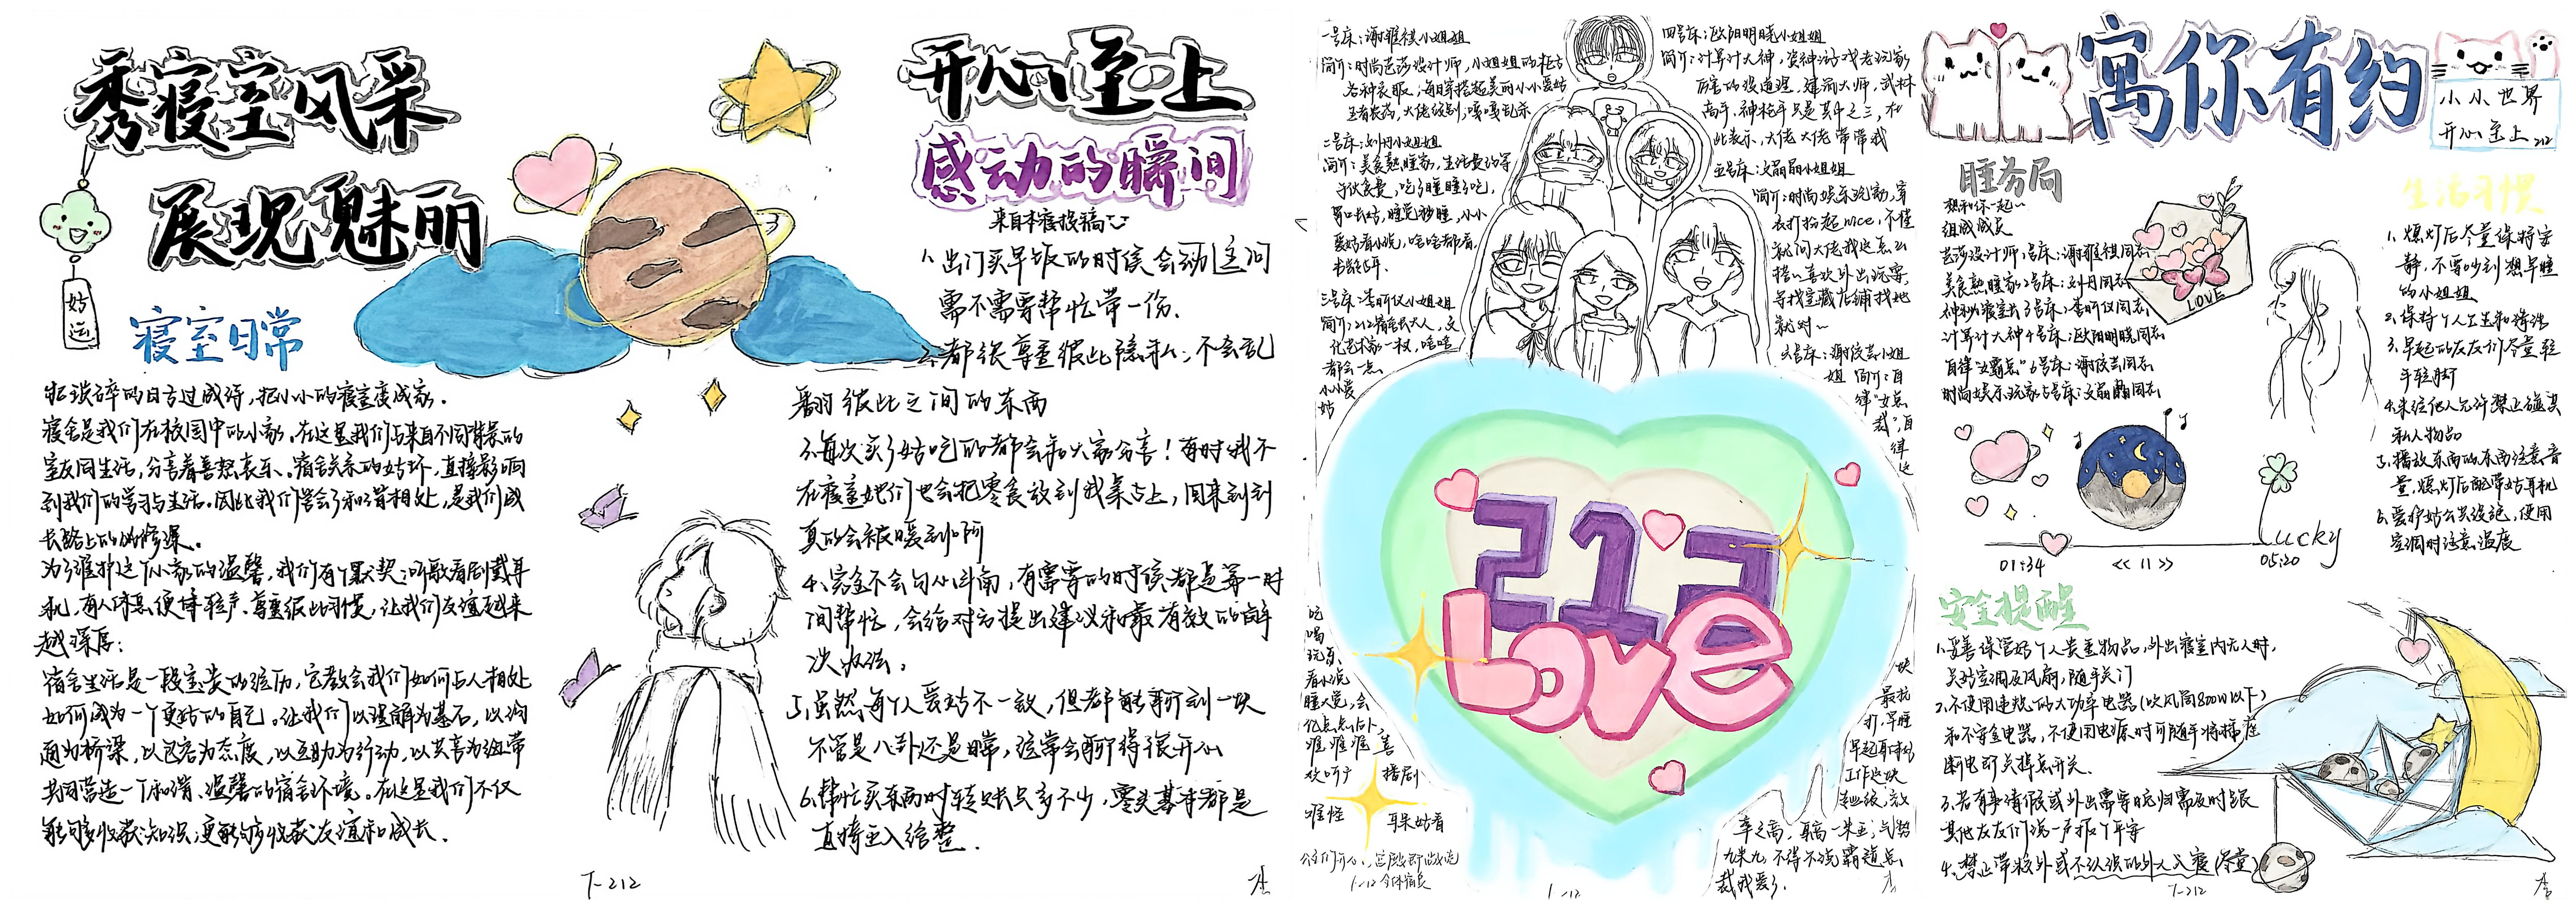 秀寝室风采
展现魅丽
好运
寝室日常
把琐碎的日子过成诗，把小小的寝室变成家．
寝舍是我们在校园中的小家，在这里我们与来自不同背景的
室友同生活，分享着喜怒哀乐。宿舍关系的好坏，直接影响
到我们的学习与生活。因此我们学会了和谐相处，是我们成
长路上的必修课。
为了维护这个小家的温馨，我们有个默契：
机，有人休息便保持轻声，尊重彼此习惯，让我们友谊越来
越深厚：
宿舍生活是一段宝贵的经历，它教会我们如何与人相处
如何成为一个更好的自己。让我们以理解为基石，以沟
通为桥梁，以包容为态度，以互助为行动，以共喜为纽带
共同营造一个和谐、温馨的宿舍环境。在这里我们不仅
能够收获知识，更能够收获友谊和成长．
7-212
开心至上
感动的瞬间
来自本寝投稿
1、出门买早饭的时候会动主问
需不需要帮忙带一份．
2、都很尊重彼此隐私；不会乱
翻彼此之间的东西
3、每次买了好吃的都会和大家分享！有时我不
在寝室她们也会把零食放到我桌上，回来看到
真的会被暖到啊
4、完全不会勾心斗角，有需要的时候都是第一时
间帮忙，会给对方提出建议和最有效的解
决办法。
5、虽然每个人爱好不一致，但都能聊到一块
不管是八卦还是日常，经常会聊得很开心
6、帮忙买东西时转账只多不少，零头基本都是
直接五入给整．
一号床：谢雅祺小姐姐
简介：时尚芭莎设计师，小姐姐的柜子
各种衣服，每日穿搭超美丽小小爱好
二号床：刘丹小姐姐
简介：美食熟睡家，生活费约等
于伙食费，吃了睡睡了吃，
胃口大好，睡觉秒睡，小小
爱好看小说，啥啥都看．
三号床：李昕仪小姐姐
简介：212寝室长大人，文
化艺术家一枚，啥啥
都会一点．
小小爱
好
吃
喝
玩乐，
看小说
睡大觉，会
亿点点占卜，
喜
欢听广播剧
四号床：欧阳明晓小姐姐
简介：计算计大神，资神游戏老玩家
厉害的没道理，建筑大师，武林
高手，神枪手只是其中之三，在
此表示，大佬大佬带带我
五号床：文晶晶小姐姐
简介：时尚娱乐玩家，穿
衣打扮超nice，不懂
就问大佬我这怎么
搭～喜欢外出玩耍，
寻找宝藏店铺找她
就对～
六号床：谢欣芸小姐
姐 简介：自
律"女总
裁"，自
律这
块
最抗
打，早睡
早起
工作这块
212
Love
寓你有约
小小世界
开心至上
212
睡务局
想和你一起～
组成成员
芭莎设计师1号床：谢雅祺同志
美食熟睡家2号床：刘丹同志
神秘寝室长3号床：李昕仪同志
计算计大神4号床：欧阳明晓同志
自律"女霸总"6号床：谢欣芸同志
时尚娱乐玩家5号床：文晶晶同志
LOVE
01:34
<< 11 >>
05:20
Lucky
生活习惯
1、熄灯后尽量保持安
静，不要吵到想早睡
的小姐姐
2、保持个人卫生和清洁
3、早起的友友们尽量轻
手轻脚
4、未经他人允许禁止碰其
私人物品
5、播放东西的东西注意音
量，熄灯后配带好耳机
6、爱护好公共设施，使用
空调时注意温度
安全提醒
1、妥善保管好个人贵重物品，外出寝室内无人时，
关好空调及风扇，随手关门
2、不使用违规的大功率电器（吹风筒800W以下）
和不安全电器，不使用电源时可随手将插座
断电即关掉总开关．
3、若有事请假或外出需要晚归需及时跟
其他友友们说一声报个平安
4、禁止带校外或不认识的外人入寝（登堂）
7-212